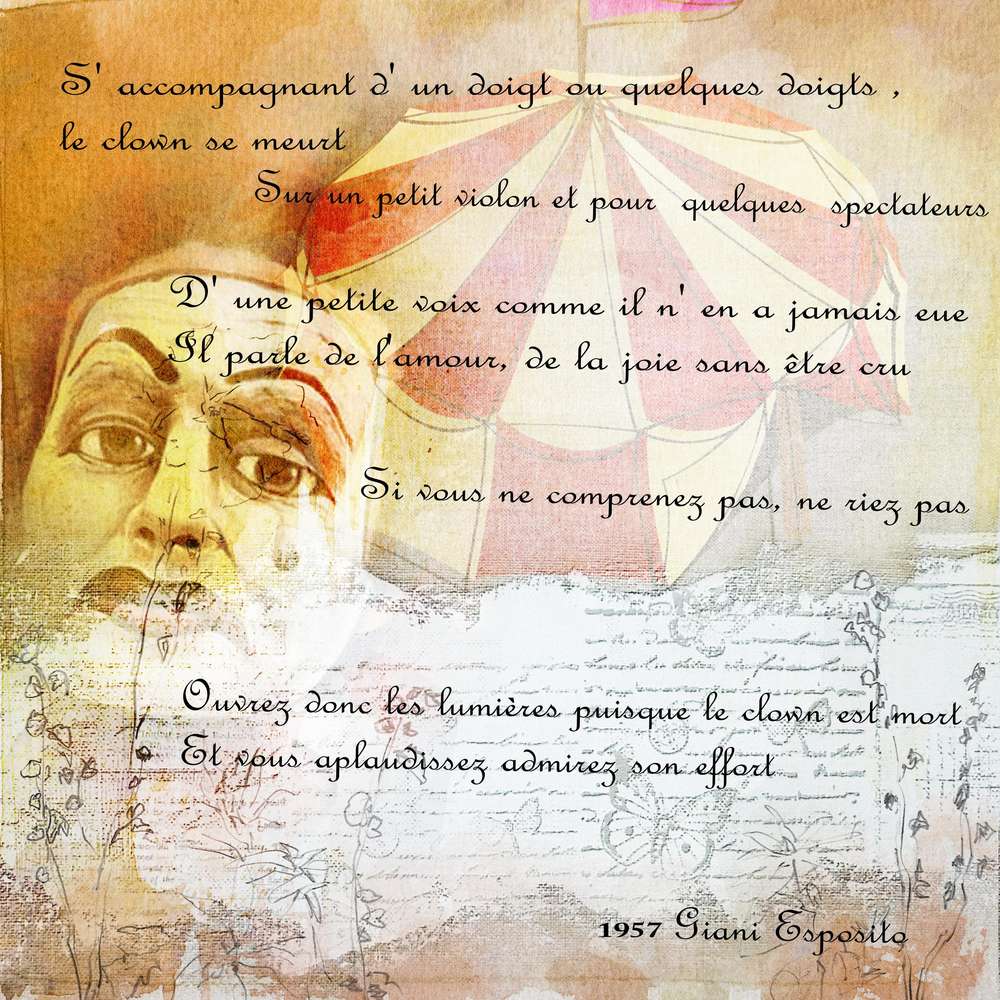 S' accompagnant d' un doigt ou quelques doigts ,
le clown se meurt
Sur un petit violon et pour quelques spectateurs
D' une petite voix comme il n' en a jamais eue
Il parle de l'amour, de la joie sans être cru
Si vous ne comprenez pas, ne riez pas
Ouvrez donc les lumières puisque le clown est mort
Et vous aplaudissez admirez son effort
1957 Giani Esposito